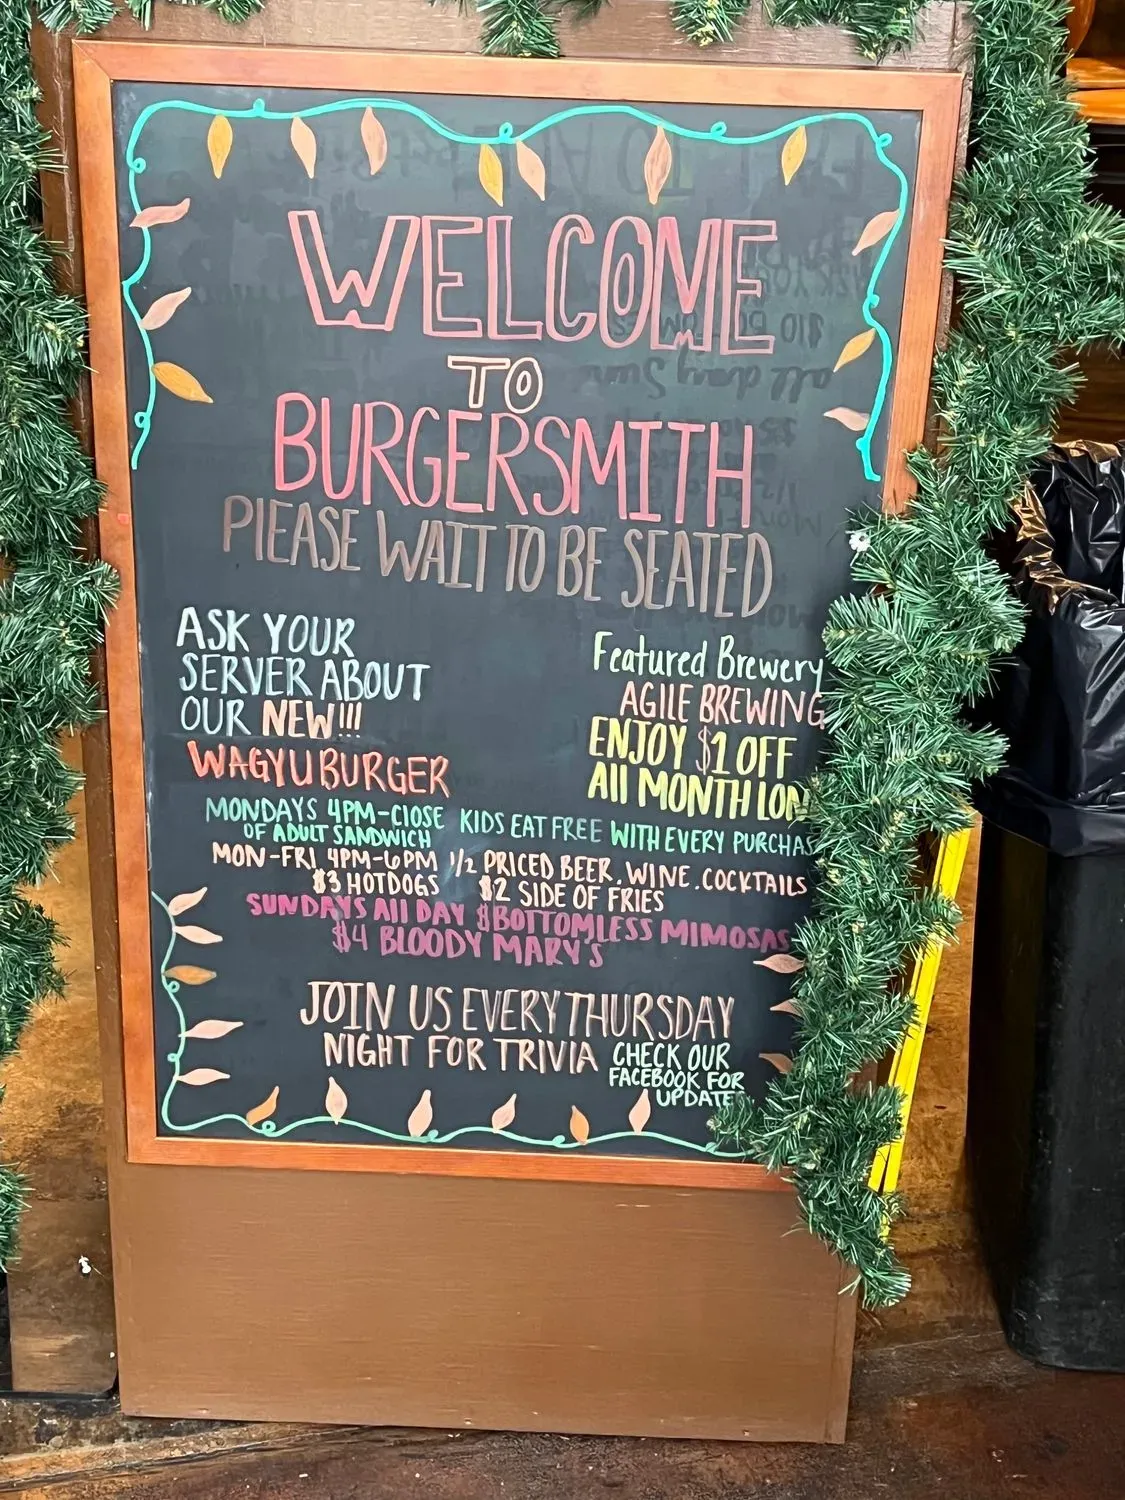 WELCOME
TO
BURGERSMITH
PLEASE WAIT TO BE SEATED
ASK YOUR
SERVER ABOUT
OUR NEW!!!
WAGYU BURGER
Featured Brewery
AGILE BREWING
ENJOY $1 OFF
All MONTH LON
MONDAYS 4PM-ClOSE KIDS EAT FREE WITH EVERY PURCHAS
OF ADULT SANDWICH
MON-FRI 4PM-6PM 1/2 PRICED BEER, WINE. COCKTAILS
$3 HOTDOGS $2 SIDE OF FRIES
SUNDAYS All DAY $ BOTTOMLESS MIMOSAS
$4 BLOODY MARY'S
JOIN US EVERY THURSDAY
NIGHT FOR TRIVIA
CHECK OUR
FACEBOOK FOR
UPDATE